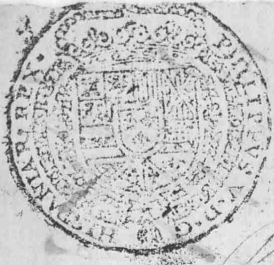 PHILIPPUS·V·D·G·
HISPANIAR·REX·